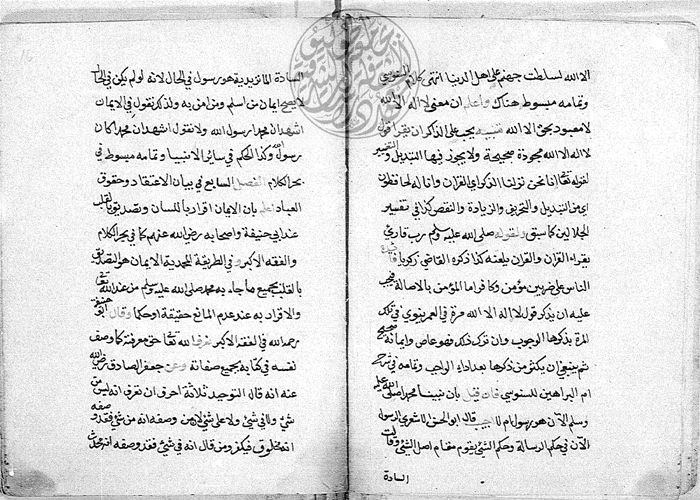 الا الله لسلطت جهنم على اهل الدنيا انتهى كلام السنوسي
وتمامه مبسوط هناك واعلم ان معنى لا اله الا الله
لا معبود بحق الا الله تنبيه يجب على الذاكر ان يقرا قول
لا اله الا الله مجودة صحيحة ولا يجوز فيها التبديل والتغيير
لقوله تعا انا نحن نزلنا الذكر اي القران وانا له لحافظون
اي من التبديل والتحريف والزيادة والنقص كذا في تفسير
الجلالين كما سبق ولقوله صلى الله عليه وسلم رب قارئ
يقراء القران والقران يلعنه كذا ذكره القاضي زكريا
الناس على ضربين مؤمن وكافر اما المؤمن بالاصالة فيجب
عليه ان يذكر قول لا اله الا الله مرة في العمر ينوي في تلك
المرة بذكرها الوجوب وان ترك ذلك فهو عاص وايمانه صحيح
ثم ينبغي ان يكثر من ذكرها بعد اداء الواجب وتمامه في شرح
ام البراهين للسنوسي فان قيل بان نبينا محمد صلى الله عليه
وسلم الآن هو رسول ام لا اجيب قال ابو الحسن الاشعري الرسول
الآن في حكم الرسالة وحكم الشئ يقوم مقام اصل الشئ وقالت
السادة
السادة الماتريدية هو رسول في الحال لانه لو لم يكن في الحال
لا يصح ايمان من اسلم ومن امن به ولذكر نقول في الايمان
اشهد ان محمدا رسول الله ولا نقول اشهد ان محمدا كان
رسول الله وكذا الحكم في سائر الانبيا وتمامه مبسوط في
بحر الكلام الفصل السابع في بيان الاعتقاد وحقوق
العباد اعلم بان الايمان اقرار باللسان وتصديق بالقلب
عند ابي حنيفة واصحابه رضى الله عنهم كما في بحر الكلام
والفقه الاكبر وفي الطريقة المحمدية الايمان هو التصديق
بالقلب بجميع ما جاء به محمد صلى الله عليه وسلم من عند الله تعا
والاقرار به عند عدم المانع حقيقة او حكما وقال ابو حنيفة
رحمه الله في الفقه الاكبر نعرف الله تعا حق معرفته كما وصف
نفسه في كتابه بجميع صفاته وعن جعفر الصادق رضى الله
عنه انه قال التوحيد ثلاثة احرف ان تعرف انه ليس من
شئ ولا في شئ ولا على شئ لان من وصفه انه من شئ فقد وصفه
انه مخلوق فيكفر ومن قال انه في شئ فقد وصفه انه محدث